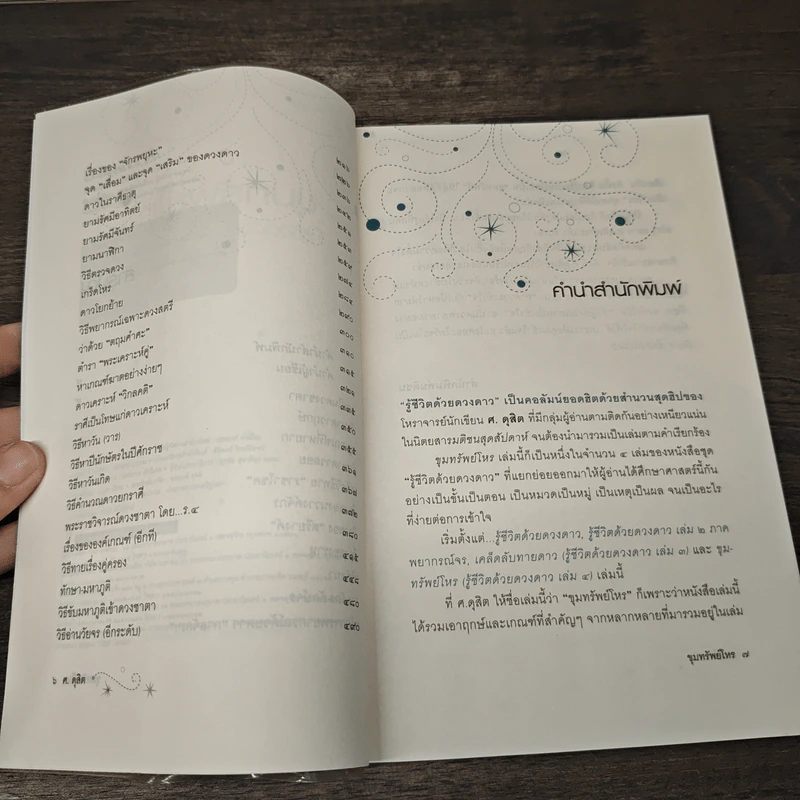 เรื่องของ "จักรพยุหะ"
จุด "เสื่อม" และจุด "เสริม" ของดวงดาว
ดาวในราศีธาตุ
ยามรัศมีอาทิตย์
ยามรัศมีจันทร์
ยามนาฬิกา
วิธีตรวจดวง
เกร็ดโหร
ดาวโยกย้าย
วิธีพยากรณ์เฉพาะดวงสตรี
ว่าด้วย "ตฤมคำคะ"
ตำรา "พระเคราะห์คู่"
หาเกณฑ์ฆาตอย่างง่ายๆ
ดาวเคราะห์ "วิกลคติ"
ราศีเป็นโทษแก่ดาวเคราะห์
วิธีหาวัน (วาร)
วิธีหาปีนักษัตรในปีศักราช
วิธีหาวันเกิด
วิธีคำนวณดาวยกราศี
พระราชวิจารณ์ดวงชาตา โดย...ร.๔
เรื่องขององค์เกณฑ์ (อีกที)
วิธีทายเรื่องคู่ครอง
ทักษา-มหาภูติ
วิธีขับมหาภูติเข้าดวงชาตา
วิธีอ่านวัยจร (อีกระดับ)
๒๑๖
๒๕๑
๒๕๓
๒๕๙
๒๙๐
๓๐๐
๓๑๐
๓๑๕
๓๒๑
๓๓๕
๓๔๕
๓๕๕
๓๖๑
๓๖๗
๓๗๒
๓๘๐
๔๑๕
๔๔๘
๔๘๐
๔๙๐
๖ ศ. ดุสิต
คำนำสำนักพิมพ์
"รู้ชีวิตด้วยดวงดาว" เป็นคอลัมน์ยอดฮิตด้วยสำนวนสุดฮิปของ
โหราจารย์นักเขียน ศ. ดุสิต ที่มีกลุ่มผู้อ่านตามติดกันอย่างเหนียวแน่น
ในนิตยสารมติชนสุดสัปดาห์ จนต้องนำมารวมเป็นเล่มตามคำเรียกร้อง
ขุมทรัพย์โหร เล่มนี้ก็เป็นหนึ่งในจำนวน ๔ เล่มของหนังสือชุด
"รู้ชีวิตด้วยดวงดาว" ที่แยกย่อยออกมาให้ผู้อ่านได้ศึกษาศาสตร์นี้กัน
อย่างเป็นขั้นเป็นตอน เป็นหมวดเป็นหมู่ เป็นเหตุเป็นผล จนเป็นอะไร
ที่ง่ายต่อการเข้าใจ
เริ่มตั้งแต่...รู้ชีวิตด้วยดวงดาว, รู้ชีวิตด้วยดวงดาว เล่ม ๒ ภาค
พยากรณ์จร, เคล็ดลับทายดาว (รู้ชีวิตด้วยดวงดาว เล่ม ๓) และ ขุม-
ทรัพย์โหร (รู้ชีวิตด้วยดวงดาว เล่ม ๔) เล่มนี้
ที่ ศ.ดุสิต ให้ชื่อเล่มนี้ว่า "ขุมทรัพย์โหร" ก็เพราะว่าหนังสือเล่มนี้
ได้รวมเอาฤกษ์และเกณฑ์ที่สำคัญๆ จากหลากหลายที่มารวมอยู่ในเล่ม
ขุมทรัพย์โหร ๗